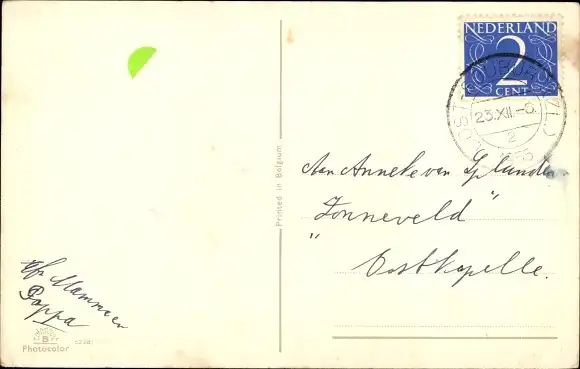 NEDERLAND
2
CENT
23.XII.-8.
2
Printed in Belgium
Aan Anneke van
"Zonneveld"
Oostkapelle.
Poppa
B
Photocolor